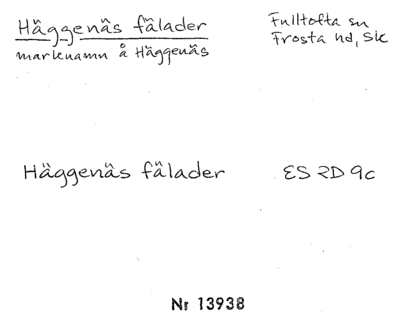 Häggenäs fälader
Fulltofta sn
marknamn å Häggenäs
Frosta hd, Sk
Häggenäs fälader
ES 2D 9c
Nr 13938